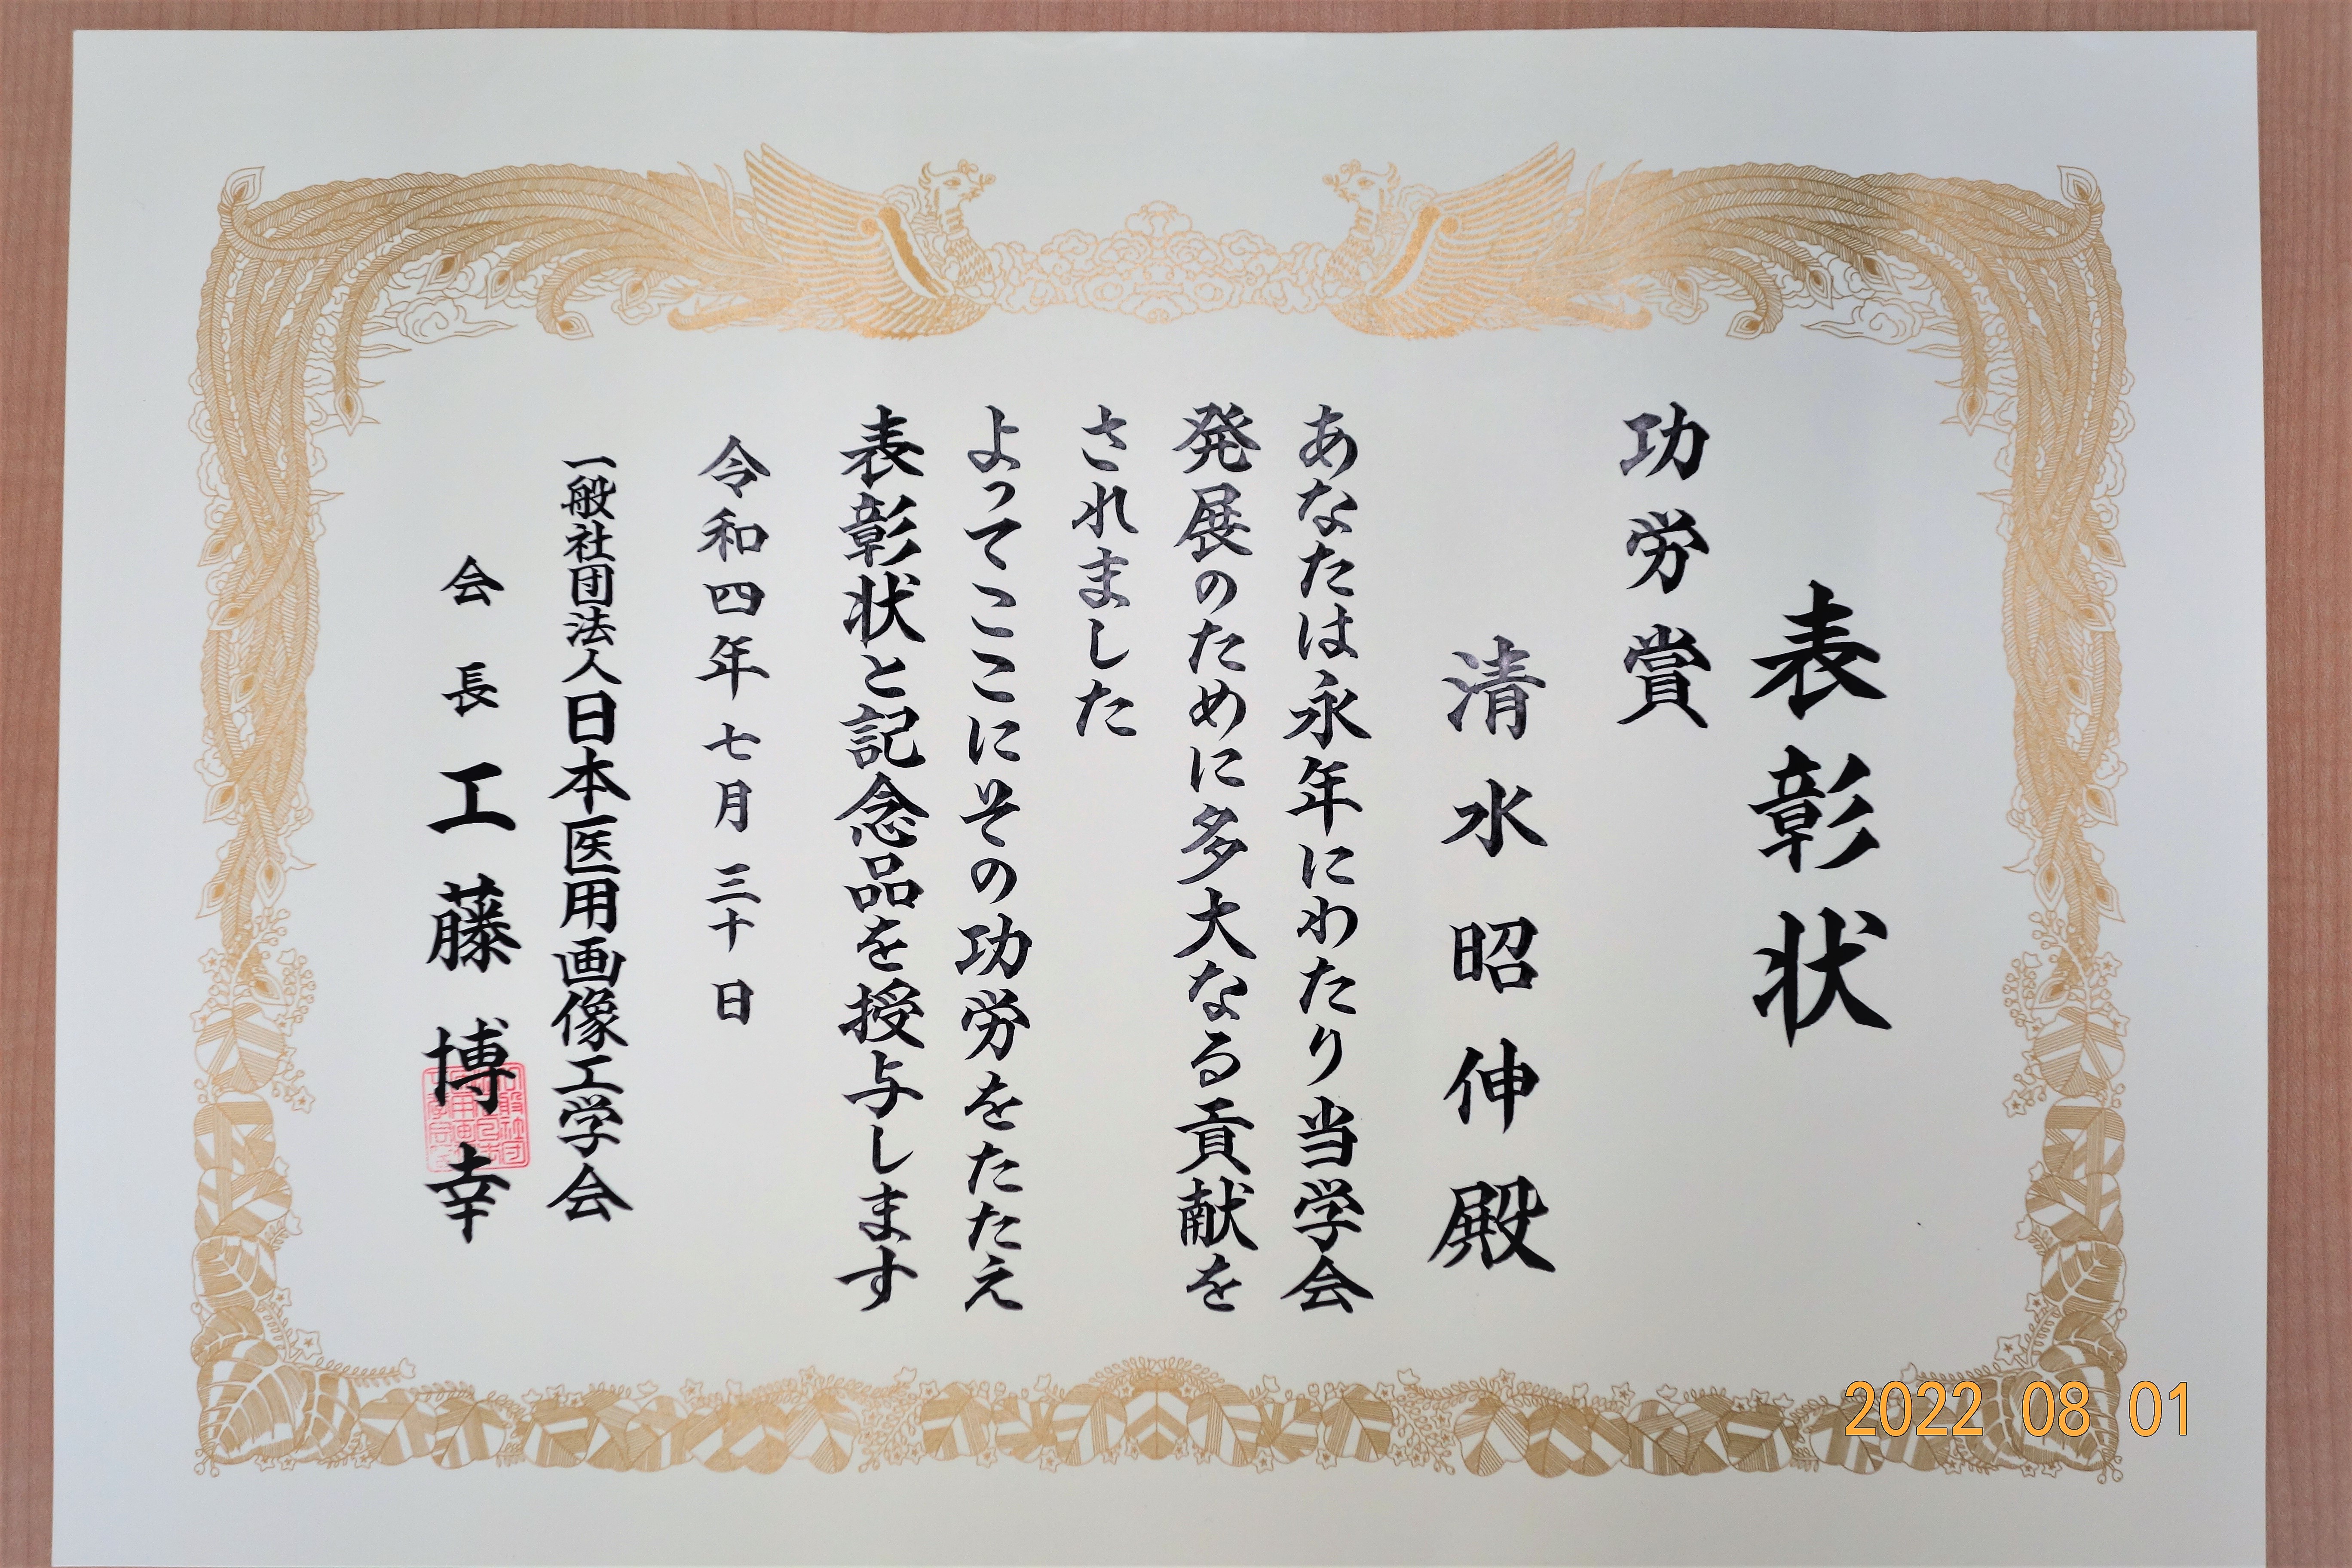 表彰状
功労賞
清水昭伸殿
あなたは永年にわたり当学会
発展のために多大なる貢献を
されました
よってここにその功労をたたえ
表彰状と記念品を授与します
令和四年七月三十日
一般社団法人日本医用画像工学会
会長工藤博幸
2022 08 01